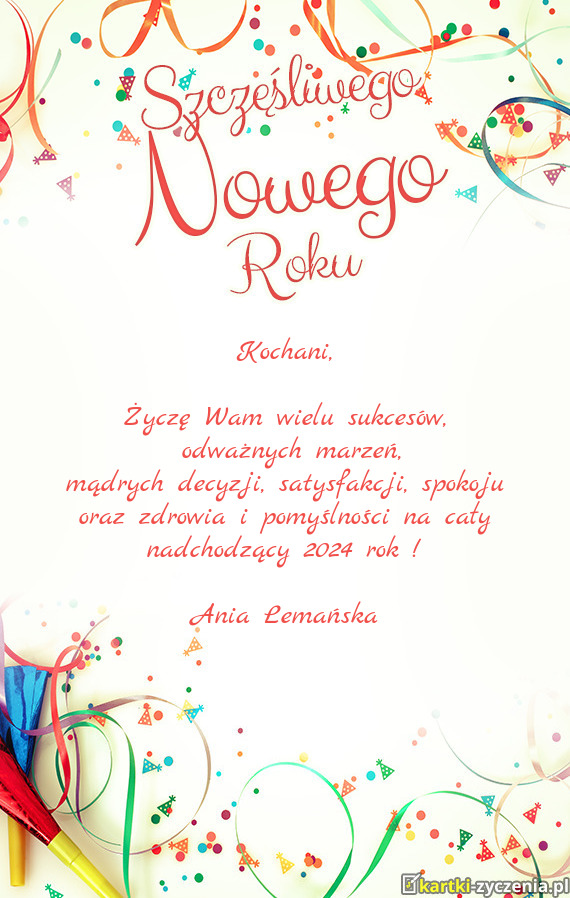 Szczęśliwego
Nowego
Roku
Kochani,
Życzę Wam wielu sukcesów,
odważnych marzeń,
mądrych decyzji, satysfakcji, spokoju
oraz zdrowia i pomyślności na cały
nadchodzący 2024 rok !
Ania Łemańska
kartki-zyczenia.pl